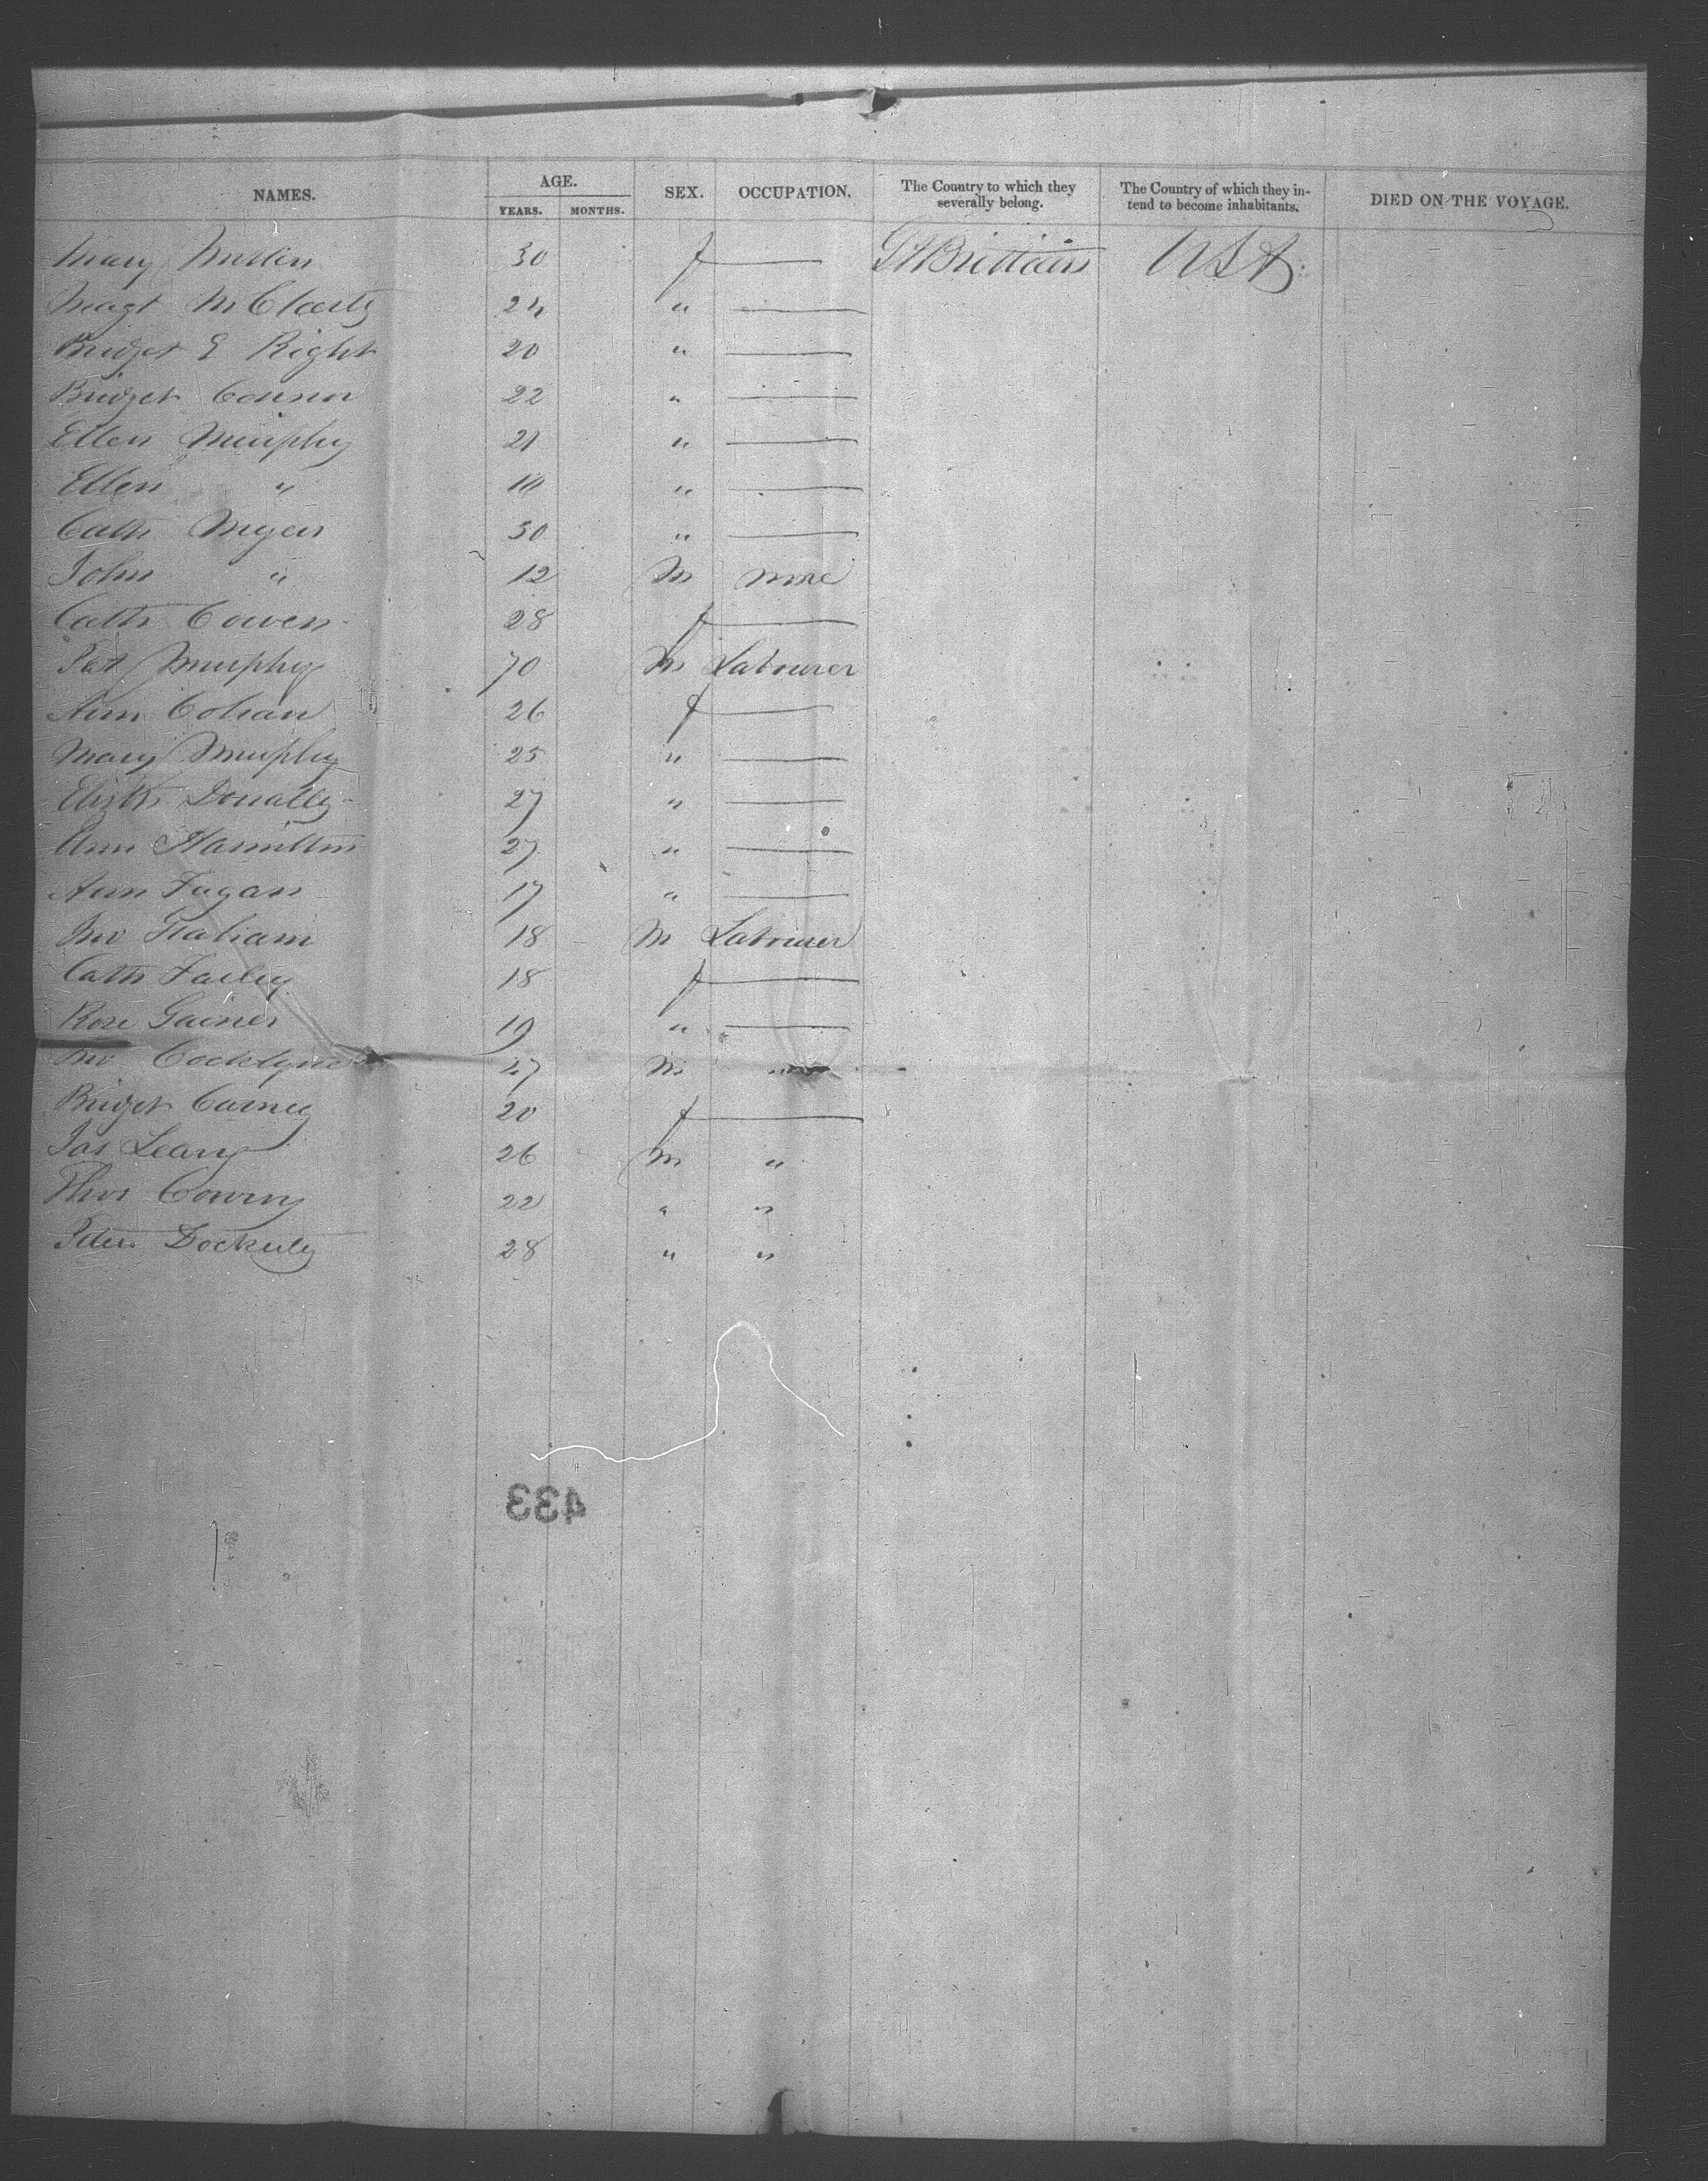 NAMES. AGE. SEX. OCCUPATION. The Country to which they severally belong. The Country of which they intend to become inhabitants. DIED ON THE VOYAGE.
YEARS. MONTHS.
Mary Mullen 30 f — Gt Brittain USA
Magt McClarty 24 " —
Bridget E Right 20 " —
Bridget Connor 22 " —
Ellen Murphy 21 " —
Ellen " " —
Cath Myers 50 " —
John " 12 M none
Cath Cowen 28 f —
Pat Murphy 70 M Labourer
Ann Cohan 26 f —
Mary Murphy 25 " —
Elizth Donally 27 " —
Ann Hamilton 27 " —
Ann Fagan 17 " —
Jno Graham 18 M Labourer
Cath Farley 18 f —
Rose Gainer 19 " —
Jno 27 M "
Bridget Carney 20 f —
Jas Leary 26 M "
Thos Conroy 22 " "
Peter Dockerty 28 " "
433